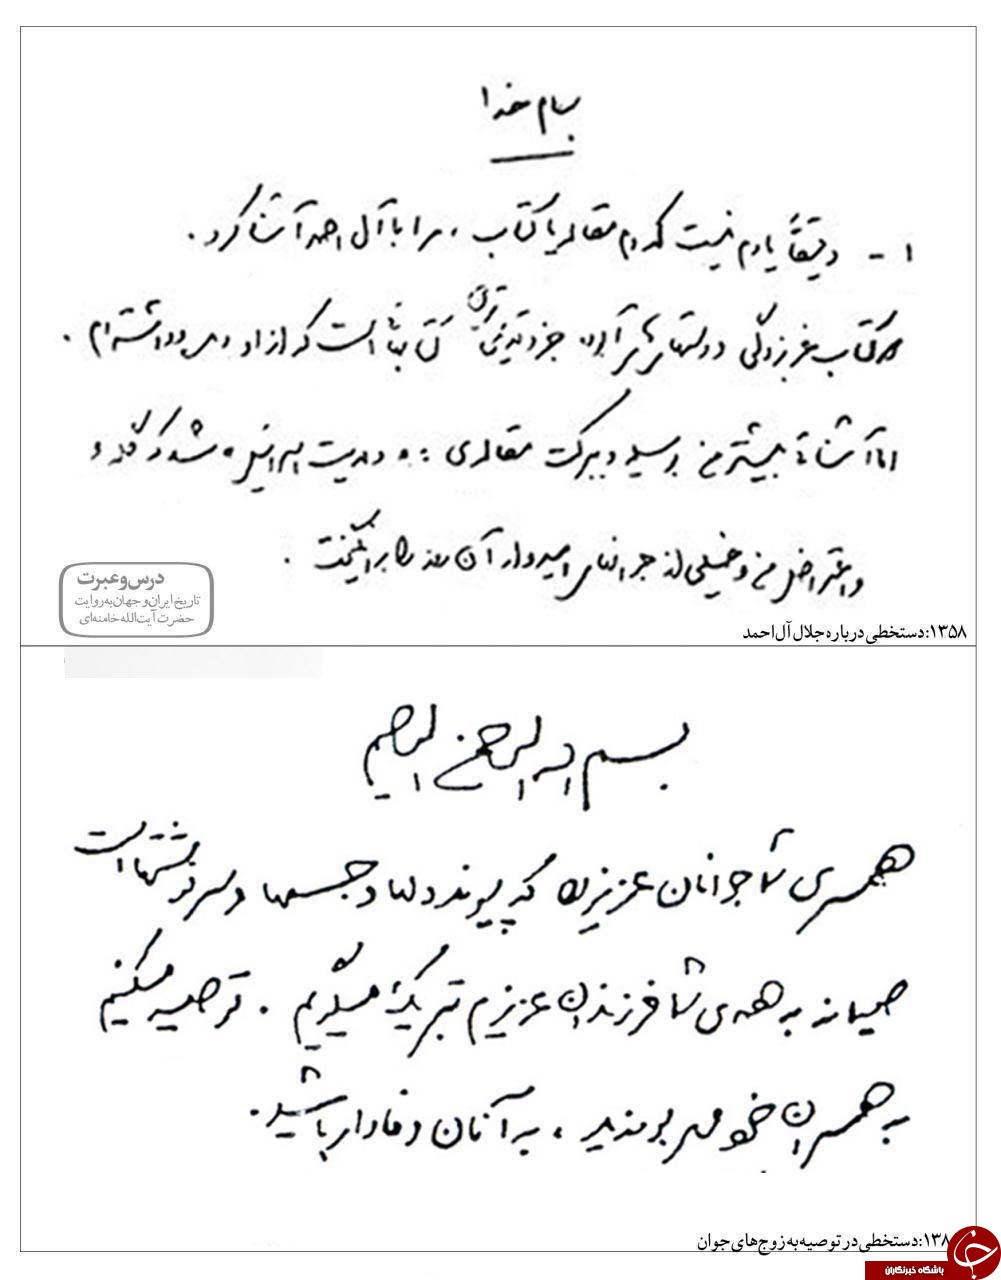 بسام خدا
۱- دقیقاً یادم نیست کدام مقاله یا کتاب، مرا با آل احمد آشنا کرد.
دو کتاب غربزدگی و دستهای آلوده جزو قدیمی‌ترین کتابهائی است که از او دیده و داشته‌ام.
اما آشنائی بیشتر من بوسیله و برکت مقاله‌ی: «ولایت اسرائیل» شد که گله و
و اعتراض من و خیلی از جوانهای امیدوار آن روز را برانگیخت.
درس و عبرت
تاریخ ایران و جهان به روایت
حضرت آیت‌الله خامنه‌ای
۱۳۵۸: دستخطی درباره جلال آل احمد
بسم الله الرحمن الرحیم
همسری شما جوانان عزیز را که پیوند دلها و جسمها و سرنوشتها است
صمیمانه به همه‌ی شما فرزندان عزیزم تبریک میگویم. توصیه میکنم
به همسران خود مهر بورزید، به آنان وفادار باشید.
۱۳۸: دستخطی در توصیه به زوج‌های جوان
باشگاه خبرنگاران